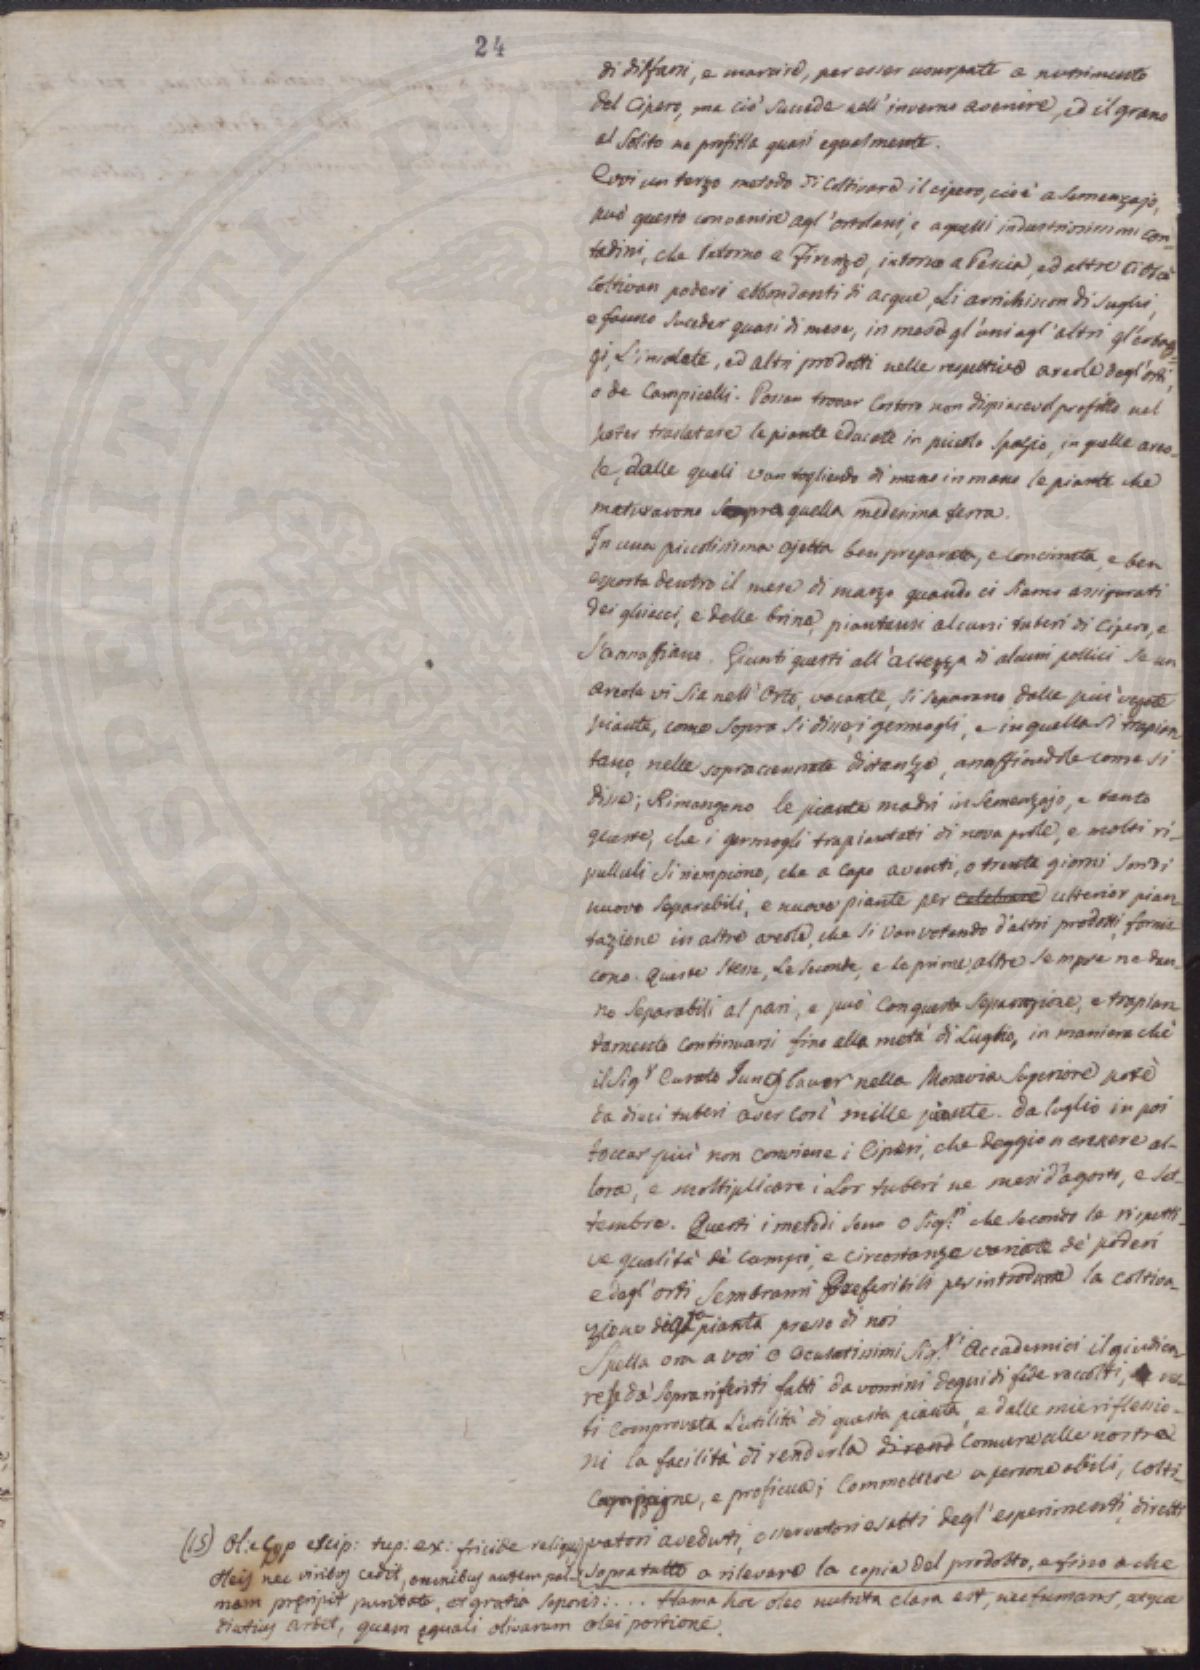 24
di disfarsi, e marcire, per esser usurpate a nutrimento
del Cipero, ma ciò succede nell'inverno avenire, ed il grano
al solito ne profitta quasi egualmente.
Evvi un terzo metodo di coltivare il cipero, cioè a Semenzajo,
può questo convenire agl'ortolani, e a quelli industriosissimi con-
tadini, che intorno a Firenze, intorno a Pescia, ed altre Città
coltivan poderi abbondanti di acque, li arrichiscon di sughi,
e fanno succeder quasi di mese, in mese gl'uni agl'altri gl'erbag-
gi, L'insalate, ed altri prodotti nelle respettive areole degl'orti,
o de Campicelli. Posson trovar Costoro non dispiacevol profitto nel
poter traslatare le piante educate in piccolo spazio, in quelle areo-
le, dalle quali van togliendo di mano in mano le piante che
maturavono sopra quella medesima terra.
In una piccolissima ajetta ben preparata, e concimata, e ben
esposta dentro il mese di marzo quando ci siamo assigurati
dei ghiacci, e delle brine, piantansi alcuni tuberi di Cipero, e
s'annaffiano. Giunti questi all'altezza di alcuni pollici se un
areola vi sia nell'Orto, vacante, si separano dalle più vegete
piante, come sopra si disse, i germogli, e in quella si trapian
tano, nelle sopraccennate distanze, annaffiandole come si
disse; Rimangono le piante madri in Semenzajo, e tanto
queste, che i germogli trapiantati di nova prole, e molti ri-
pulluli si riempiono, che a capo a venti, o trenta giorni son di
nuovo separabili, e nuove piante per celebrare ulterior pian
tazione in altre areole, che si van votando d'altri prodotti, fornis
cono. Queste stesse, le seconde, e le prime, altre sempre ne dan-
no separabili al pari, e può con questa separazione, e trapian
tamento continuarsi fino alla metà di Luglio, in maniera che
il Sigr Curato nella Moravia Superiore potè
da dieci tuberi aver così mille piante. Da luglio in poi
toccar più non conviene i Ciperi, che deggion crescere al-
lora, e moltiplicare i lor tuberi ne mesi d'agosto, e set-
tembre. Questi i metodi sono o Sig.ri che secondo le rispetti-
ve qualità de' campi, e circostanze variate de' poderi
e degl'orti sembranmi Preferibili per introdurre la coltiva-
zione di q.ta pianta presso di noi
Spetta ora a voi o oculatissimi Sig.ri Accademici il giudica
re se da' sopra riferiti fatti da uomini degni di fede raccolti,
ti comprovata L'utilità di questa pianta, e dalle mie riflessio-
ni la facilità di renderla di rend Comune alle nostre
Campagne, e proficua; Commettere a persone abili, colti-
vatori aveduti, osservatori esatti degl'esperimenti, diretti
sopra tutto a rilevare la copia del prodotto, e fino a che
(15) Ol: Cyp excip: sup: ex: fricide reliquis
oleis nec viribus cedit, omnibus autem pal-
mam præripit puritate, et gratia saporis: ... flama hoc oleo nutrita clara est, nec fumans, atque
diutius ardet, quam equali olivarum olei portione.